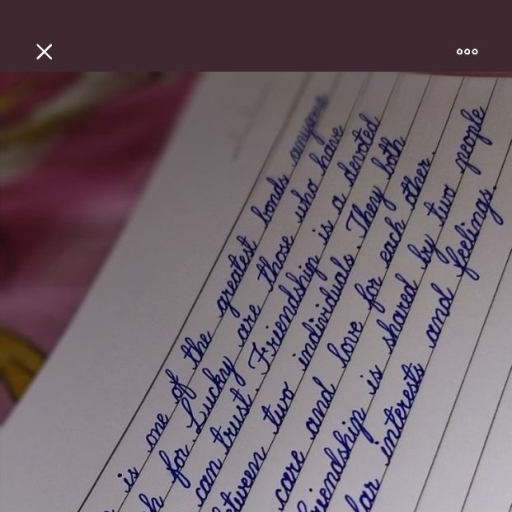 is one of the greatest bonds anyone
for. Lucky are those who have
can trust. Friendship is a devoted
between two individuals. They both
care and love for each other.
Friendship is shared by two people
interests and feelings.